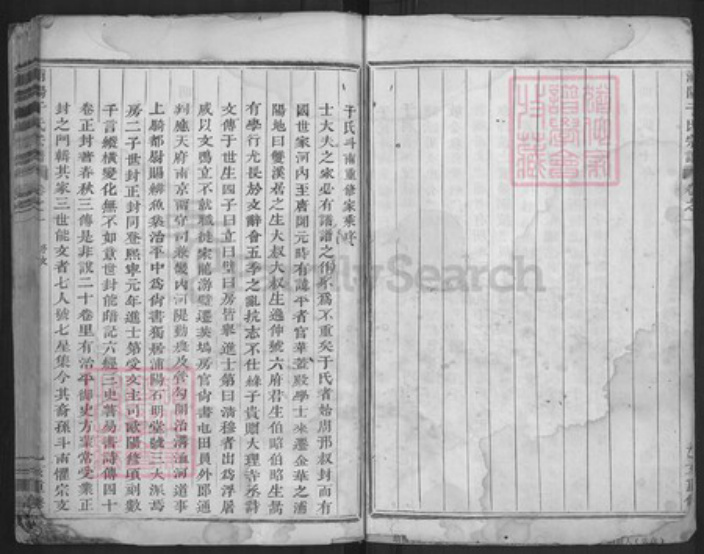 于氏斗南重修家乘序
士大夫之家必有譜譜之作所為不重矣于氏者始周邘叔封而有
國世家河內至唐開元時有諱平者官華蓋殿學士來遷金華之浦
陽地曰雙溪居之生大叔大叔生遜伸號六府君生伯昭伯昭生暠
有學行尤長於文辭會五季之亂抗志不仕緣子貴贈大理寺丞詩
文傳于世生四子曰立曰壁曰房皆舉進士第曰清穆者出為浮屠
咸以文鳴立不就職徙家睦游壁遷英塢房官尚書屯田員外郎通
判應天府南京留守司兼畿內河隄勸農及管勾開治溝洫河道事
上騎都尉賜緋魚袋治平中為尚書獨居浦陽石明堂號三大派焉
房二子世封正封同登熙寧元年進士第受文主司歐陽修頃刻數
千言縱橫變化無不如意世封能暗記六經三史著易書詩傳四十
卷正封著春秋三傳是非說二十卷里有治平御史方蒙常受業正
封之門輯其家三世能文者七人號七星集今其裔孫斗南懼宗支
浦陽于氏宗譜 卷之一
FamilySearch